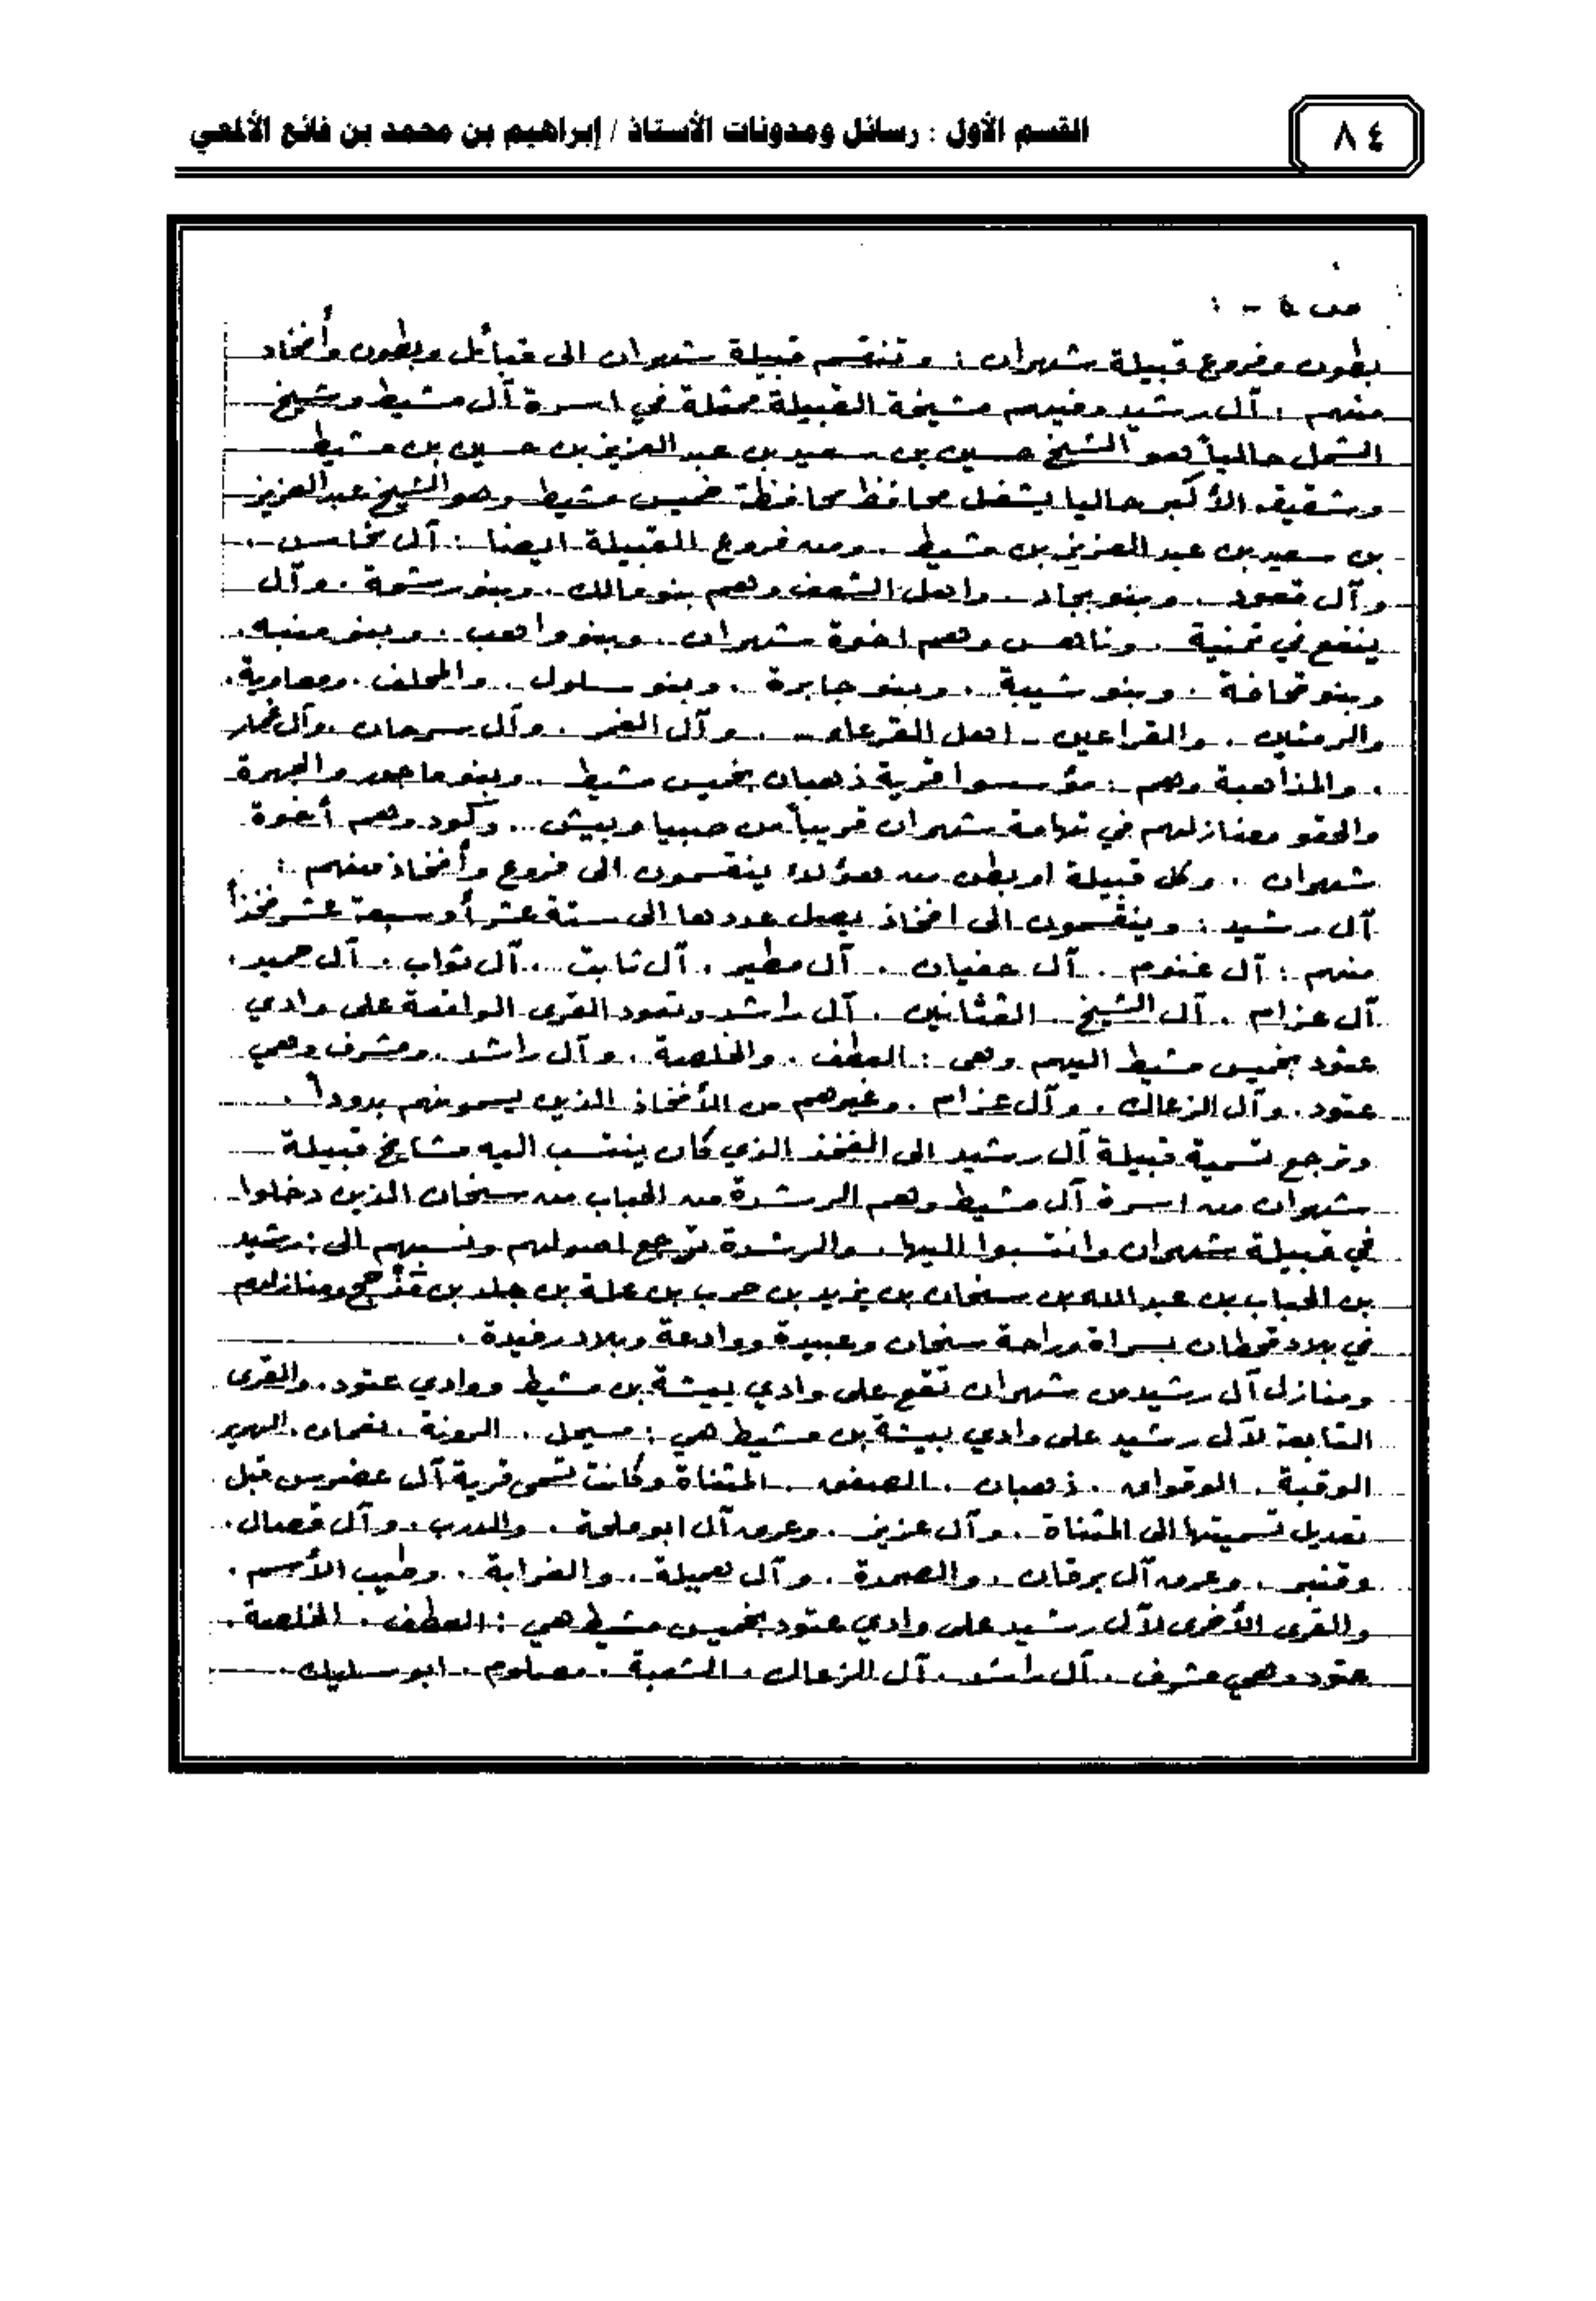 ٨٤
القسم الأول : رسائل ومدونات الأستاذ / إبراهيم بن محمد بن فائع الألمعي
بطون وفروع قبيلة شهران : وتنقسم قبيلة شهران الى قبائل وبطون وأفخاد
منهم : آل رشيد وفيهم مشيخة القبيلة ممثلة في اسرة آل مشيط وشيخ
الشمل حالياً هو الشيخ حسين بن سعيد بن عبد العزيز بن حسين بن مشيط
وشقيقه الأكبر حاليا يشغل محافظ محافظة خميس مشيط وهو الشيخ عبد العزيز
بن سعيد بن عبد العزيز بن مشيط . ومن فروع القبيلة ايضا : آل
وآل قعود . وبنو بجاد . واهل الشعف وهم بنو مالك . وبنو رشمة . وآل
ينفع في تمنية . وناهس وهم اخوة شهران . وبنو واهب . وبنو منبه .
وبنو قحافة . وبنو شيبة . وبنو جابرة . وبنو سلول . والمحلف . ومعاوية .
والرمثين . والقراعين - اهل القرعاء - . وآل الغمر . وآل سرحان . وآل
. والمذاهبة وهم : مؤسسوا قرية ذهبان بخميس مشيط . وبنو ماجور والجهرة
والحقو ومنازلهم في تهامة شهران قريباً من صبيا وبيش . وكود وهم أخوة
شهران . وكل قبيلة او بطن من هؤلاء ينقسمون الى فروع وأفخاذ منهم :
آل رشيد : وينقسمون الى افخاذ يصل عددها الى ستة عشر أو سبعة عشر فخذاً
منهم : آل غنوم . آل . آل مطير . آل ثابت . آل ثواب . آل حميد .
آل عزام . آل الشيخ . . آل راشد وتعود القرى الواقعة على وادي
عتود بخميس مشيط اليهم وهى : العطف . والخلصة . وآل راشد . ومشرف وهي
عتود . وآل الزعلك . وآل عزام . وغيرهم من الأفخاذ الذين يسمونهم بدوداً .
وترجع تسمية قبيلة آل رشيد الى الفخذ الذي كان ينتسب اليه مشايخ قبيلة
شهران من اسرة آل مشيط وهم الرشدة من الحباب من سنحان الذين دخلوا
في قبيلة شهران وانتسبوا اليها . والرشدة ترجع اصولهم ونسبهم الى : رشيد
بن الحباب بن عبد الله بن سنحان بن يزيد بن حرب بن علة بن جلد بن مذحج ومنازلهم
في بلاد قحطان بسراة وراحة سنحان وعبيدة ووادعة وبلاد رفيدة .
ومنازل آل رشيد من شهران تقع على وادي بيشة بن مشيط ووادي عتود . والقرى
التابعة لآل رشيد على وادي بيشة بن مشيط هي : مسيحل . الرونة . نعمان . الهرير
الوقبة . . ذهبان . الصفق . المثناة وكانت تسمى قرية آل عضريس قبل
تعديل تسميتها الى المثناة . وآل عزيز . وعرق آل ابو ملحة . والدرب . وآل قصال .
وقنبر . وعرق آل برقان . والصمدة . وآل هميلة . والغرابة . وطيب الأسم .
والقرى الأخرى لآل رشيد على وادي عتود بخميس مشيط هي : العطف . الخلصة .
عتود وهي مشرف . آل راشد . آل الزعلك . الشعبة . . ابو سليك .